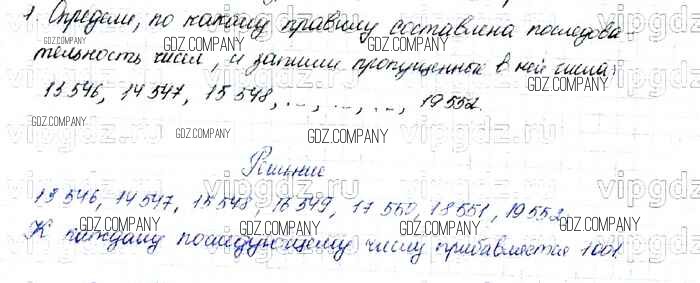 1. Определи, по какому правилу составлена последова
тельность чисел, и запиши пропущенные в ней числа:
13 546, 14 547, 15 548, ..., ..., ..., 19 552.
Решение
13 546, 14 547, 15 548, 16 549, 17 550, 18 551, 19 552
К каждому последующему числу прибавляется 1001
GDZ.COMPANY
vipgdz.ru